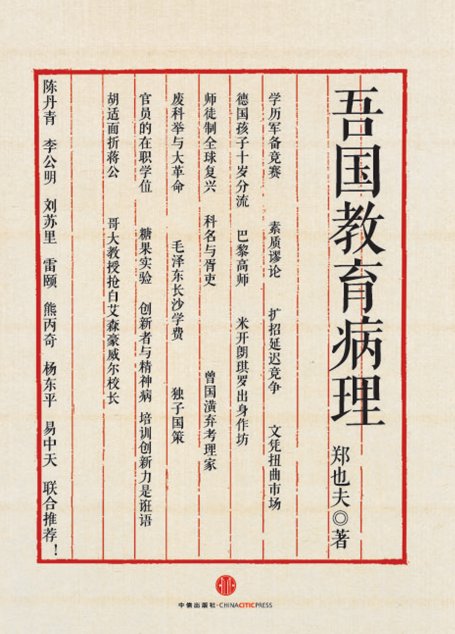 吾国教育病理
郑也夫◎著
学历军备竞赛 素质谬论 扩招延迟竞争 文凭扭曲市场
德国孩子十岁分流 巴黎高师 米开朗琪罗出身作坊
师徒制全球复兴 科名与胥吏 曾国潢弃考理家
废科举与大革命 毛泽东长沙学费 独子国策
官员的在职学位 糖果实验 创新者与精神病 培训创新力是诳语
胡适面折蒋公 哥大教授抢白艾森豪威尔校长
陈丹青 李公明 刘苏里 雷颐 熊丙奇 杨东平 易中天 联合推荐！
中信出版社·CHINACITICPRESS